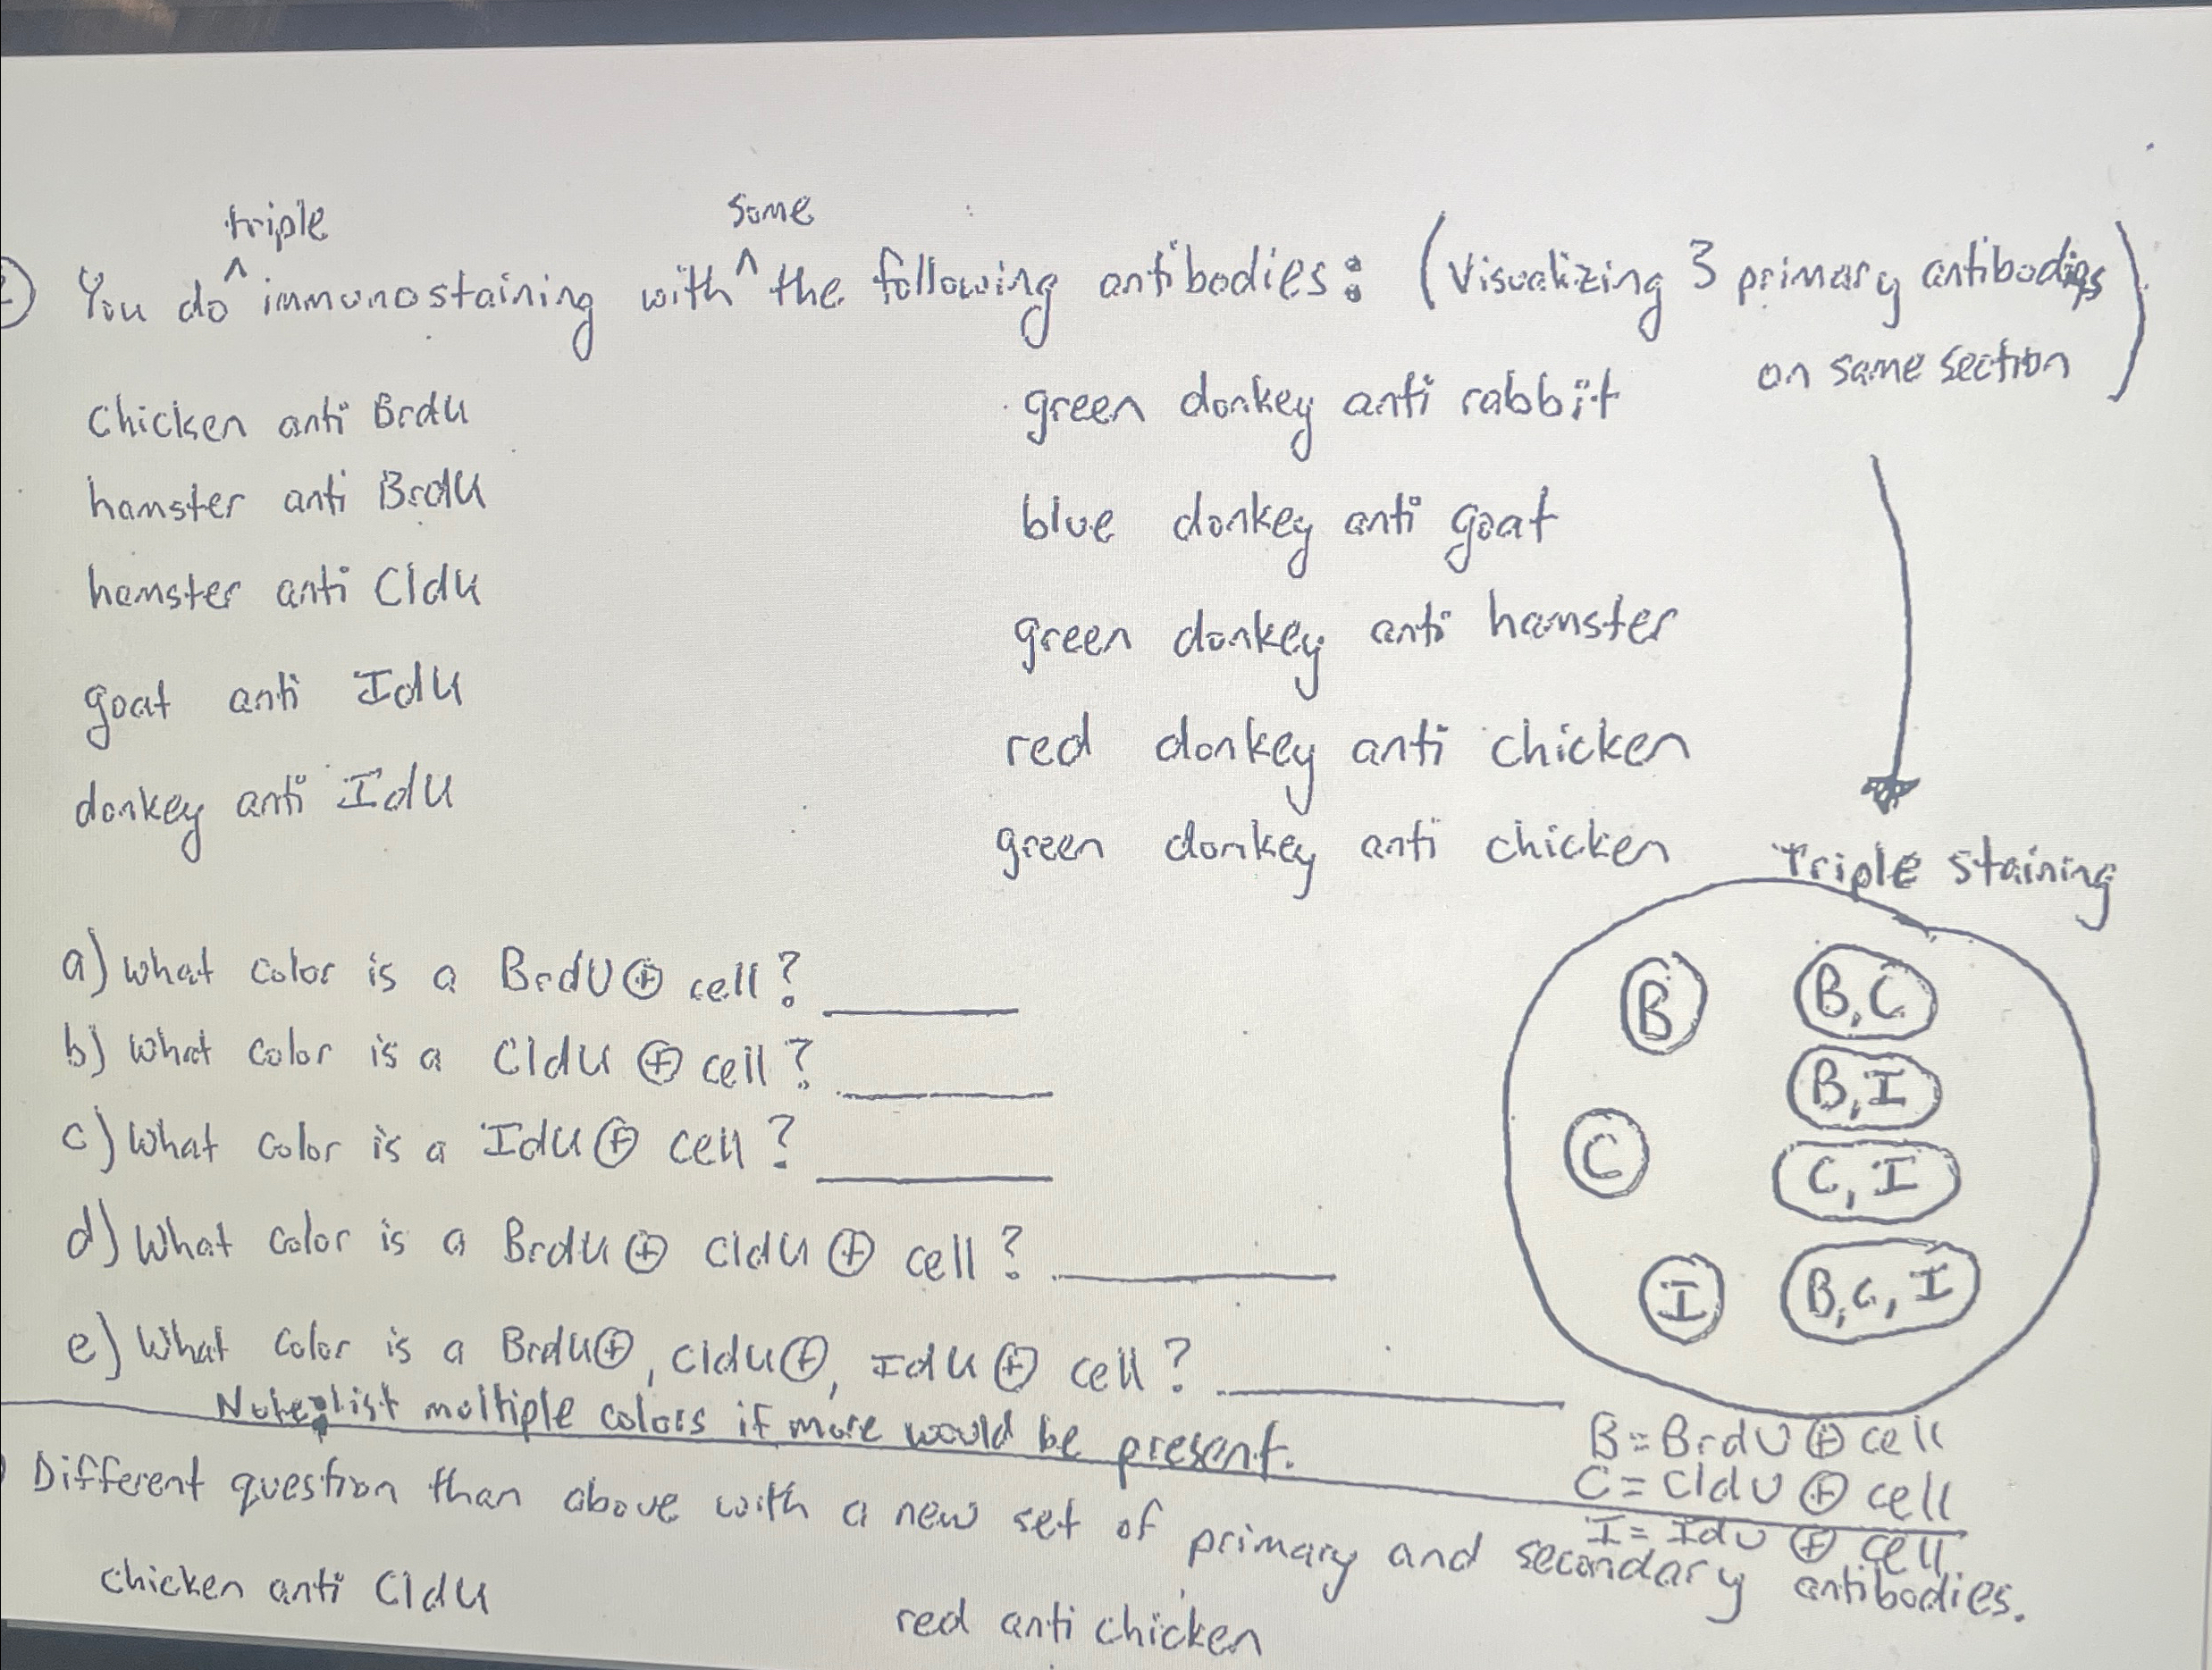 triple some
You do ^ immunostaining with ^ the following antibodies: (Visualizing 3 primary antibodies
on same section)
Chicken anti BrdU
hamster anti BrdU
hamster anti CldU
goat anti IdU
donkey anti IdU
green donkey anti rabbit
blue donkey anti goat
green donkey anti hamster
red donkey anti chicken
green donkey anti chicken
Triple staining
B
B, C
B, I
C
C, I
I
B, C, I
B = BrdU ⊕ cell
C = CldU ⊕ cell
I = IdU ⊕ cell
a) What color is a BrdU ⊕ cell? ______
b) What color is a CldU ⊕ cell? ______
c) What color is a IdU ⊕ cell? ______
d) What color is a BrdU ⊕ CldU ⊕ cell? ______
e) What color is a BrdU ⊕, CldU ⊕, IdU ⊕ cell? ______
Note: list multiple colors if more would be present.
Different question than above with a new set of primary and secondary antibodies.
chicken anti CldU
red anti chicken